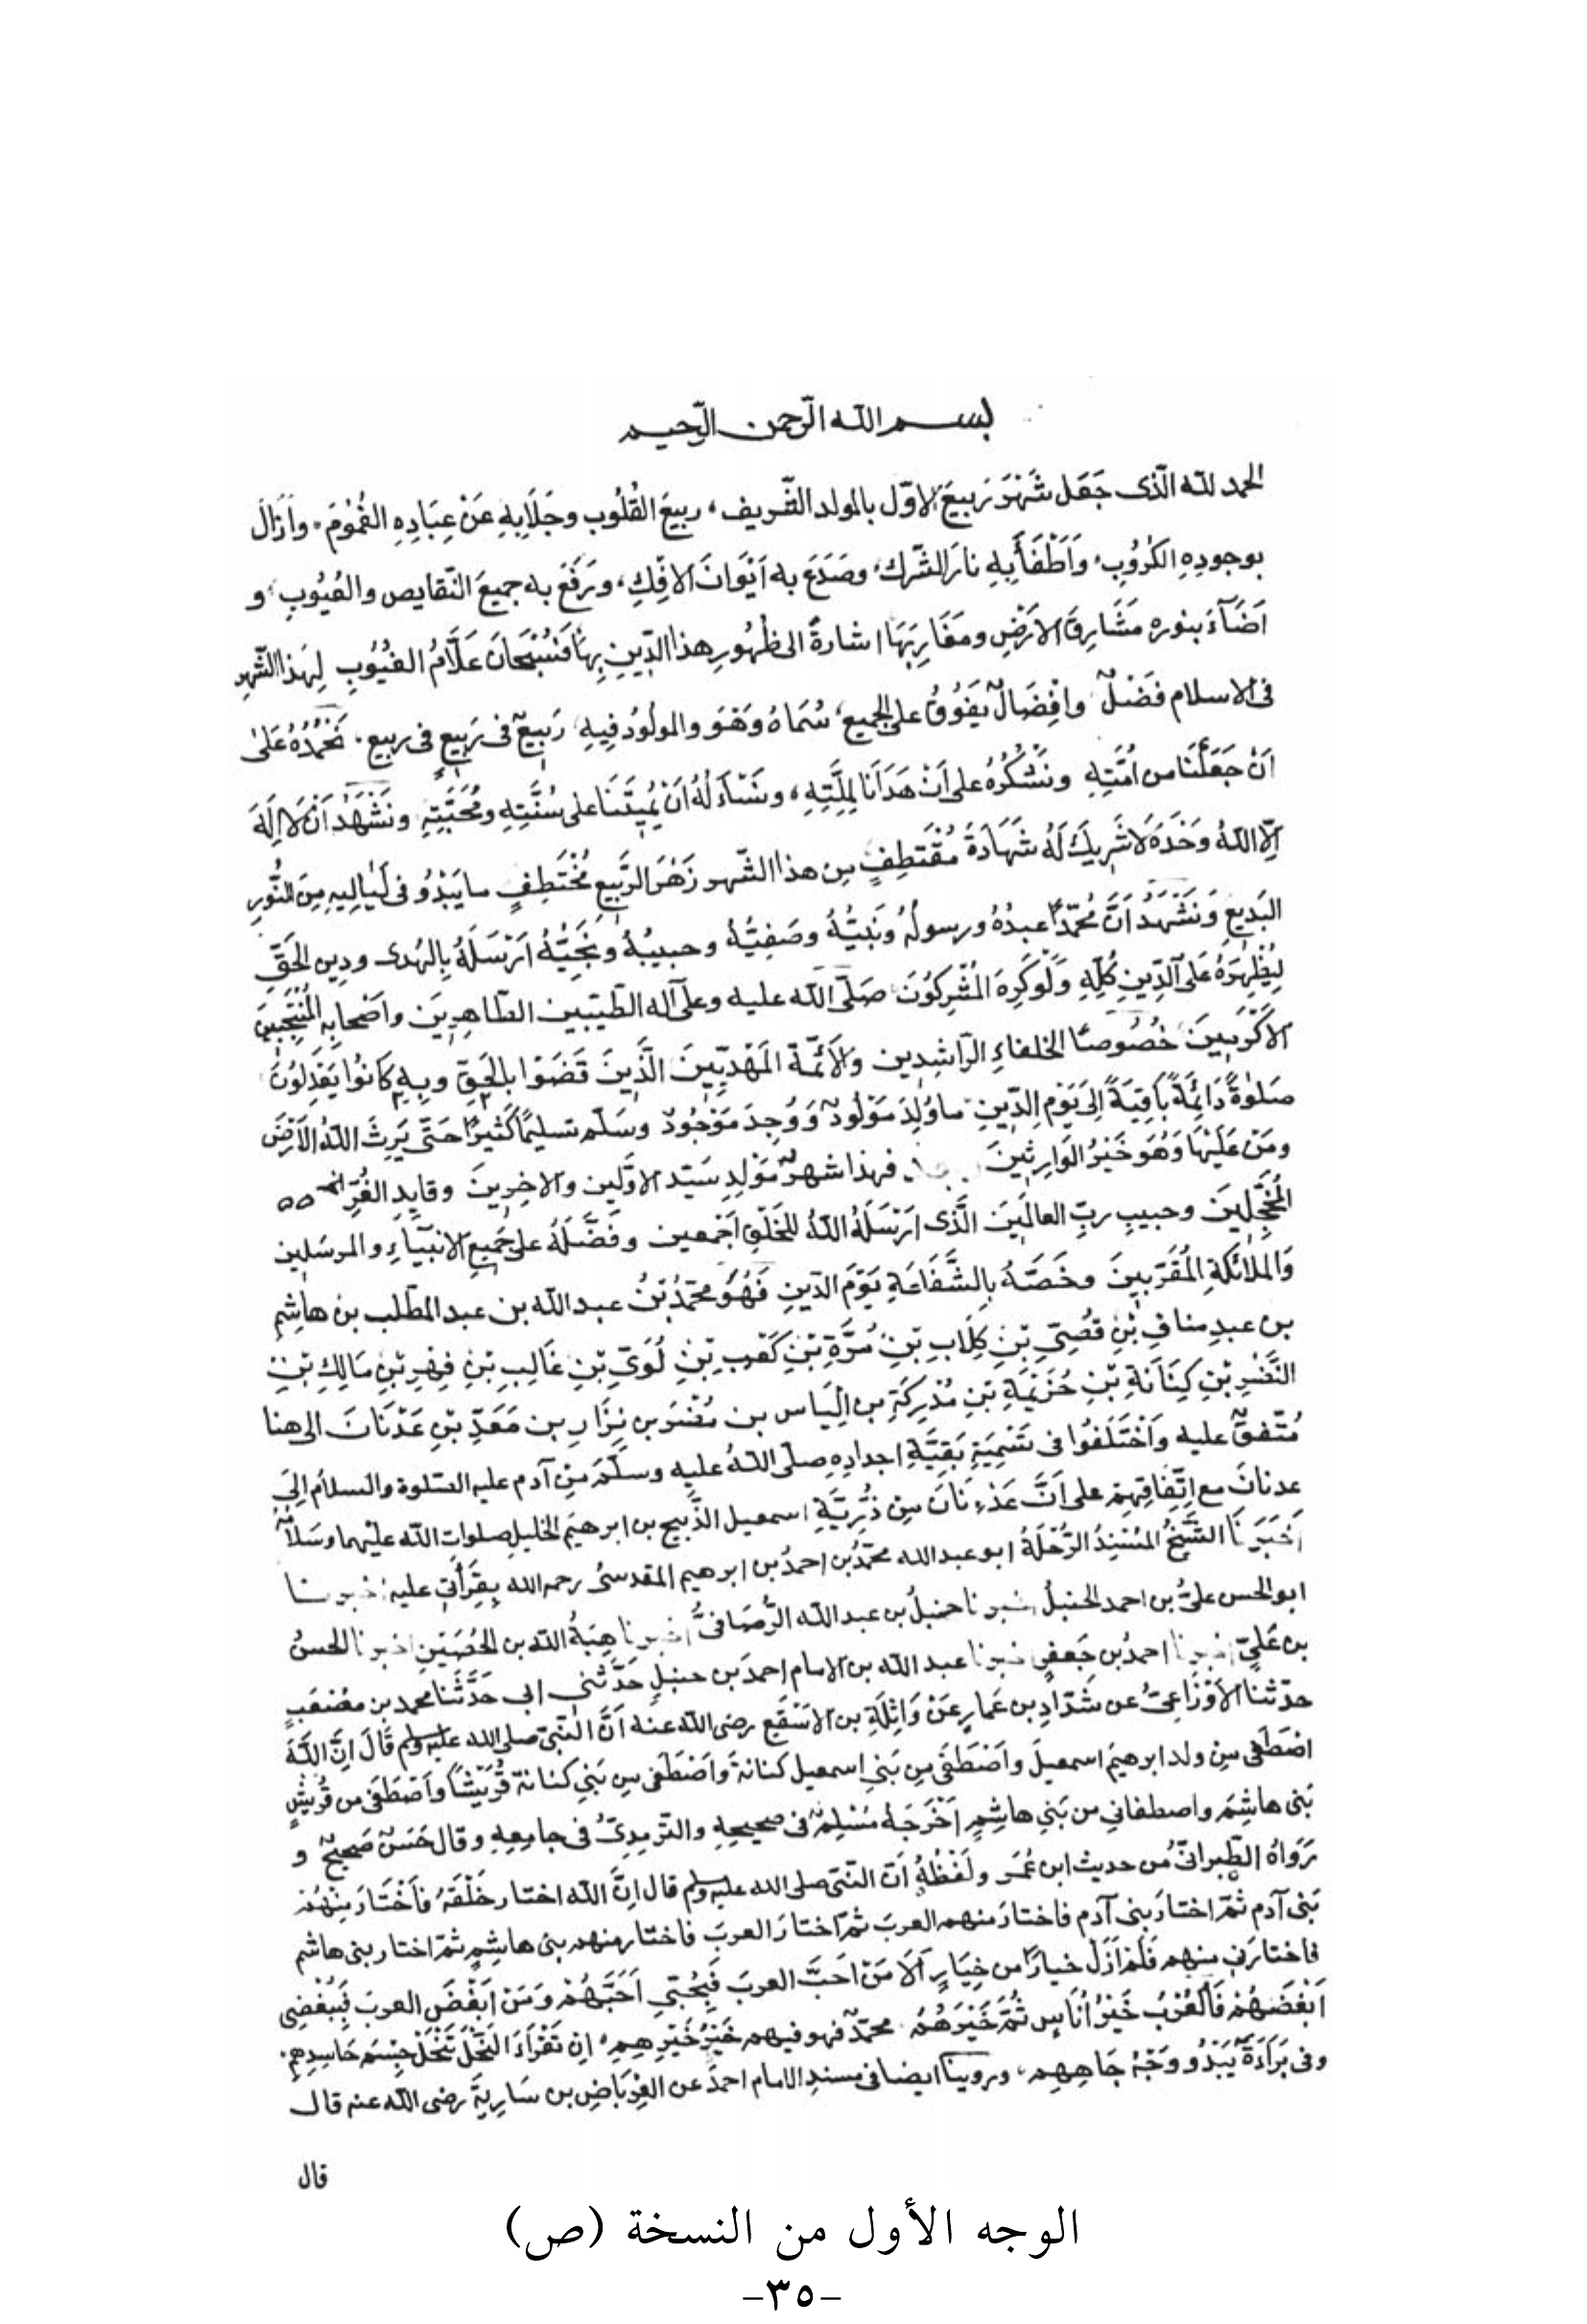 بسم الله الرّحمن الرّحيم
الحمد لله الّذى جَعَل شَهْرَ رَبيعَ الاوّل بالمولد الشّريف، ربيعَ القُلُوب وجَلَا بِهِ عَنْ عِبَادِهِ الغُمُومَ. وأزَالَ
بوجودِهِ الكُرُوُبِ، وَاَطْفَأَ بِهِ نارَ الشّرك، وصَدَعَ به اَيْوَانَ الافْكِ، ورَفَعَ به جميعَ النّقايص والعُيُوبِ، و
اَضَآءَ بنوره مَشَارِقَ الارْضِ ومَغَارِبَهَا اشارةً الى ظُهُورِ هذا الدّينِ بِهَا فَسُبْحَانَ عَلَّامُ الغيُوُبِ لِهَذا الشّهرِ
فى الاسلام فَضْلٌ وافْضَالٌ يَفُوقُ على الجميع، سُمَاهُ وَهْوَ والمولُودُ فِيهِ، رَبيعٌ فى رَبِيعٍ فى ربيع. نَحْمُدُهُ عَلىٰ
اَنْ جَعَلَنَا من اُمَّتِهِ ونَشْكُرُهُ على اَنْ هَدَانَا لِمِلَّتِهِ، ونَسْاَءلُهُ اَنْ يُمِيتَنَا على سُنَّتِهِ ومُحَبَّتِهِ ونَشْهَدُ اَنْ لَا اِلَهَ
اِلَّا اللّهُ وَحْدَهُ لَا شَرِيكَ لَهُ شَهَادَةً مُقْتَطِفٍ مِن هذا الشّهر زَهْرَ الرَّبيعِ مُخْتَطِفٍ ما يَبْدُو فى لَيَالِيهِ مِنَ النُّورِ
البَديعِ وَنَشْهَدُ اَنَّ مُحمّدًا عبدُهُ ورسولُهُ ونَبيُّهُ وصَفِيُّهُ وحبيبُهُ ونَجِيُّهُ اَرْسَلَهُ بِالهُدى ودِينِ الحَقِّ
لِيُظْهِرَهُ عَلَى الدِّينِ كُلِّهِ وَلَوْ كَرِهَ المُشْرِكُونَ صَلَّى اللّه عليه وعلى آله الطّيّبين الطّاهِرِيَن واَصْحابِه المُنْتَجَبينَ
الاكْرَبِينَ خُصُوصًا الخلفاءِ الرّاشِدِين والاَئِمّةَ المَهْديّينَ الَّذينَ قَضَوْا بالحَقِّ وبِهِ كانُوا يَعْدِلُونَ
صَلٰوةً دَائِمَةً بَاقِيَةً اِلىَ يَوْمِ الدّينِ ما وُلِدَ مَوْلُودٌ وَوُجِدَ مَوْجُودٌ وسَلّم تسليمًا كَثيرًا حَتّى يَرِثَ اللّهُ الاَرْضَ
ومَنْ عَلَيْهَا وَهُوَ خَيْرُ الوَارِثِينَ فهذا شهرُ مَوْلِدِ سَيّد الاوّلين والاخِرِينَ وقايدِ الغُرِّ
المُحَجَّلِينَ وحبيبِ ربِّ العالَمِينَ الَّذى اَرْسَلَهُ اللّهُ للخَلْقِ اَجْمعين وفَضَّلَهُ على جَميعِ الانبيَاءِ والمرسَلِين
وَالملائكةِ المُقَرّبينَ وخَصَّهُ بِالشَّفَاعَةِ يَوْمَ الدّينِ فَهُوَ محمّدُ بْنُ عبد اللّه بن عبد المطّلب بن هاشِمِ
بن عبدِ منافِ بْنِ قُصِيِّ بْنِ كِلَابِ بْنِ مُرَّةِ بْنِ كَعْبِ بْنِ لُوَيِّ بْنِ غَالِبِ بْنِ فِهْرِ بْنِ مَالِكِ بْنِ
النَّضْرِ بْنِ كِنَانَةِ بْنِ خُزَيْمَةِ بْنِ مُدْرِكَةِ بن اِليَاس بن مُضَرَ بن نِزَارِ بن مَعَدِّ بْنِ عَدْنَانَ الى هنا
مُتّفقٌ عليه وَاخْتَلَفُوا فى تَسْمِيَةِ بَقِيَّةِ اجدادِهِ صلّى اللّهُ عليهِ وسلّمَ مِنْ آدم عليه الصّلوة والسلاُم اِلىَ
عدنانَ مع اِتِّفَاقِهِمْ على اَنَّ عَدْنَانَ مِنْ ذُرِّيَّةِ اسمعيل الذَّبيحِ بن ابرهيَم الخليلِ صلواتِ اللّه عليْهما وسَلامُهُ
اَخْبَرَنَا الشَّيْخُ المُسْنِدُ الرُّحْلَةُ ابو عبد الله محمّدُ بن احمدُ بن ابرهيم المقدسىُ رحمه الله بِقِرَأَتى عليه اخبرنا
ابو الحسن علىُّ بن احمد الحنبلُ اخبرنا حنبلُ بن عبد اللّه الرُّصَافىُّ اخبرنا هِبَةُ اللّه بن الحُصَيْنِ اخبرنا الحسنُ
بن عَلىٍّ اخبرنا احمدُ بن جَعفرٍ اخبرنا عبد اللّه بن الامام احمدَ بن حنبلٍ حَدَّثَنى ابى حَدَّثَنا محمد بن مصْعَبٍ
حدّثنا الأوْزَاعىُّ عن شَدّادِ بن عَمارٍ عَنْ وَاثِلَةِ بن الاسْقَعِ رضى اللّه عنهُ اَنَّ النّبىّ صلى الله عليه وسلم قَالَ اِنَّ اللّهَ
اصْطَفى مِن ولد ابرهيَم اسمعيلَ واَصْطَفَى مِن بَنى اسمعيل كنانةَ وَاصْطَفى مِن بَنى كنانةَ قُرَيْشًا وَاصْطَفَى من قُرَيْشٍ
بَنى هاشِمَ واصطفانى من بَنى هاشِمٍ اَخْرَجَهُ مُسْلِمٌ فى صحيحِهِ والتّرمِذِىُّ فى جامِعِهِ وقال حَسَنٌ صَحيحٌ و
رَوَاهُ الطّبرانىُّ مِن حديث ابن عُمَر ولَفْظُهُ اَنّ النّبىّ صلى الله عليه وسلم قال اِنَّ اللّه اختار خَلْقَهُ فَاَخْتَارَ مِنْهُمْ
بَنى آدم ثُمّ اختارَ بنى آدم فاختارَ منهم العربَ ثُمّ اختارَ العربَ فاختار منهم بنى هاشِمٍ ثُمّ اختار بنى هاشم
فاختارنى منهم فَلَمْ اَزَلْ خيارًا من خِيَارٍ اَلَا مَنْ اَحَبَّ العربَ فَبِحُبّى اَحَبَّهُمْ وَمَنْ اَبْغَضَ العربَ فَبِبُغْضِى
اَبْغَضَهُمْ فَالعُرْبُ خَيْرُ اُنَاسٍ ثُمَّ خَيْرُهُمُ. محمّدٌ فهو فيهم خَيْرُ خَيْرِهِمِ، اِن تَقْرَأَ النَّحْلَ تَنْحَلْ جِسْمَ حَاسِدِهِم.
وفى بَرَاءَةَ يَبْدُو وَجْهُ جَاهِهِم، وروينا ايضا فى مسندِ الامام احمدَ عن العِرْبَاضِ بن سَارِيةَ رضى اللّه عنه قال
قال
الوجه الأول من النسخة (ص)
-٣٥-